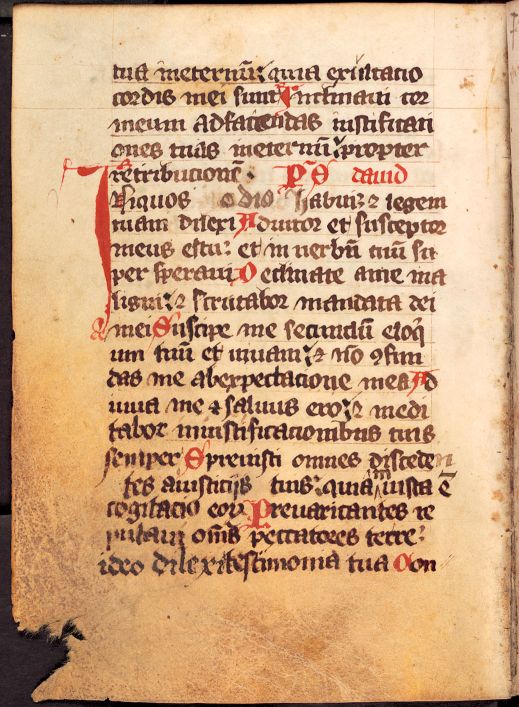 tua ineternū: quia exultatio
cordis mei sunt Inclinaui cor
meum adfaciendas iustificati
ones tuas ineternū: propter
retributionē: Ps̄ dauid
Iniquos odio habui: ⁊ legem
tuam dilexi Adiutor et susceptor
meus estu: et in uerbū tuū su
per speraui: Declinate ame ma
ligni: ⁊ scrutabor mandata dei
mei Suscipe me secundū eloq
ium tuū et uiuam: ⁊ nō ꝯfun
das me abexpectacione mea Ad
iuua me ⁊ saluus ero: ⁊ medi
tabor iniustificacionibus tuis
semper Spreuisti omnes disceden
tes aiusticijs tuis: quia iniusta ē
cogitacio eoꝝ Preuaricantes re
putaui om̄s peccatores terre:
ideo dilexi testimonia tua Con